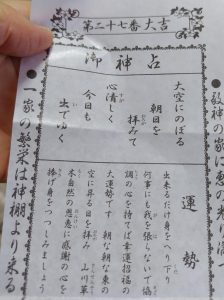 第二十七番大吉
御神占
大空にのぼる
朝日を
拝みて
心清しく
すが
今日も
出でゆく
運勢
出来るだけ身をへり下り
何事にも我を張らないで協
調の心を持てば幸運招福の
大運勢です 朝な朝な東の
空に昇る日を拝み 山川草
木自然の恩恵に感謝の心を
捧げ身をつつしみましょう
●一家の繁栄は神棚より来る
●敬神の家に恵の